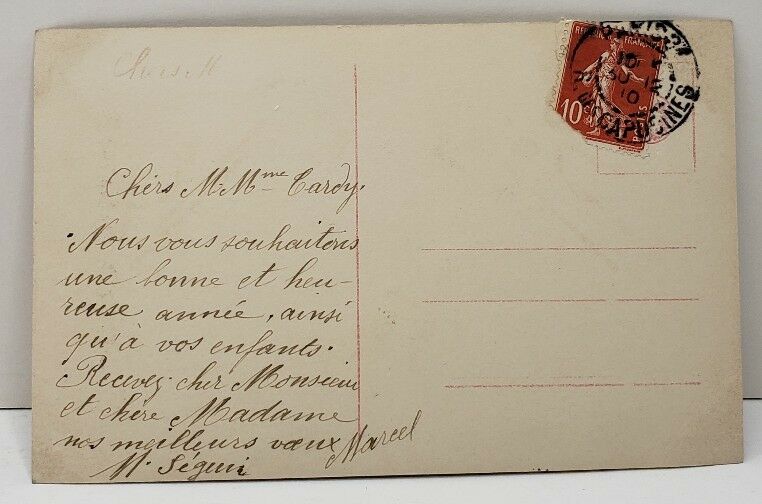 Chers M
Chers M. Mme Tardy.
Nous vous souhaitons
une bonne et heu-
reuse année, ainsi
qu'à vos enfants.
Recevez cher Monsieur
et chère Madame
nos meilleurs vœux
M. Séguin
Marcel
10
30 12
10
CAPUCINES
10